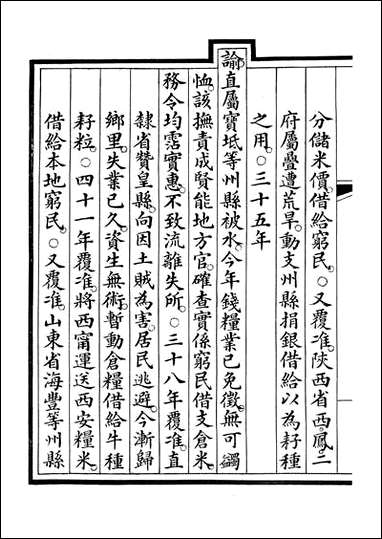 分儲米價借給窮民。○又覆准陝西省西鳳二
府屬疊遭荒旱。動支州縣捐銀借給以為耔種
之用。○三十五年
諭直屬寶坻等州縣被水。今年錢糧業已免徵。無可蠲
恤。該撫責成賢能地方官。確查實係窮民借支倉米。
務令均霑實惠。不致流離失所。○三十八年覆准。直
隸省贊皇縣向因土賊為害。居民逃避。今漸歸
鄉里。失業已久。資生無術。暫動倉糧借給牛種
耔粒。○四十一年覆准。將西甯運送西安糧米。
借給本地窮民。○又覆准。山東省海豐等州縣